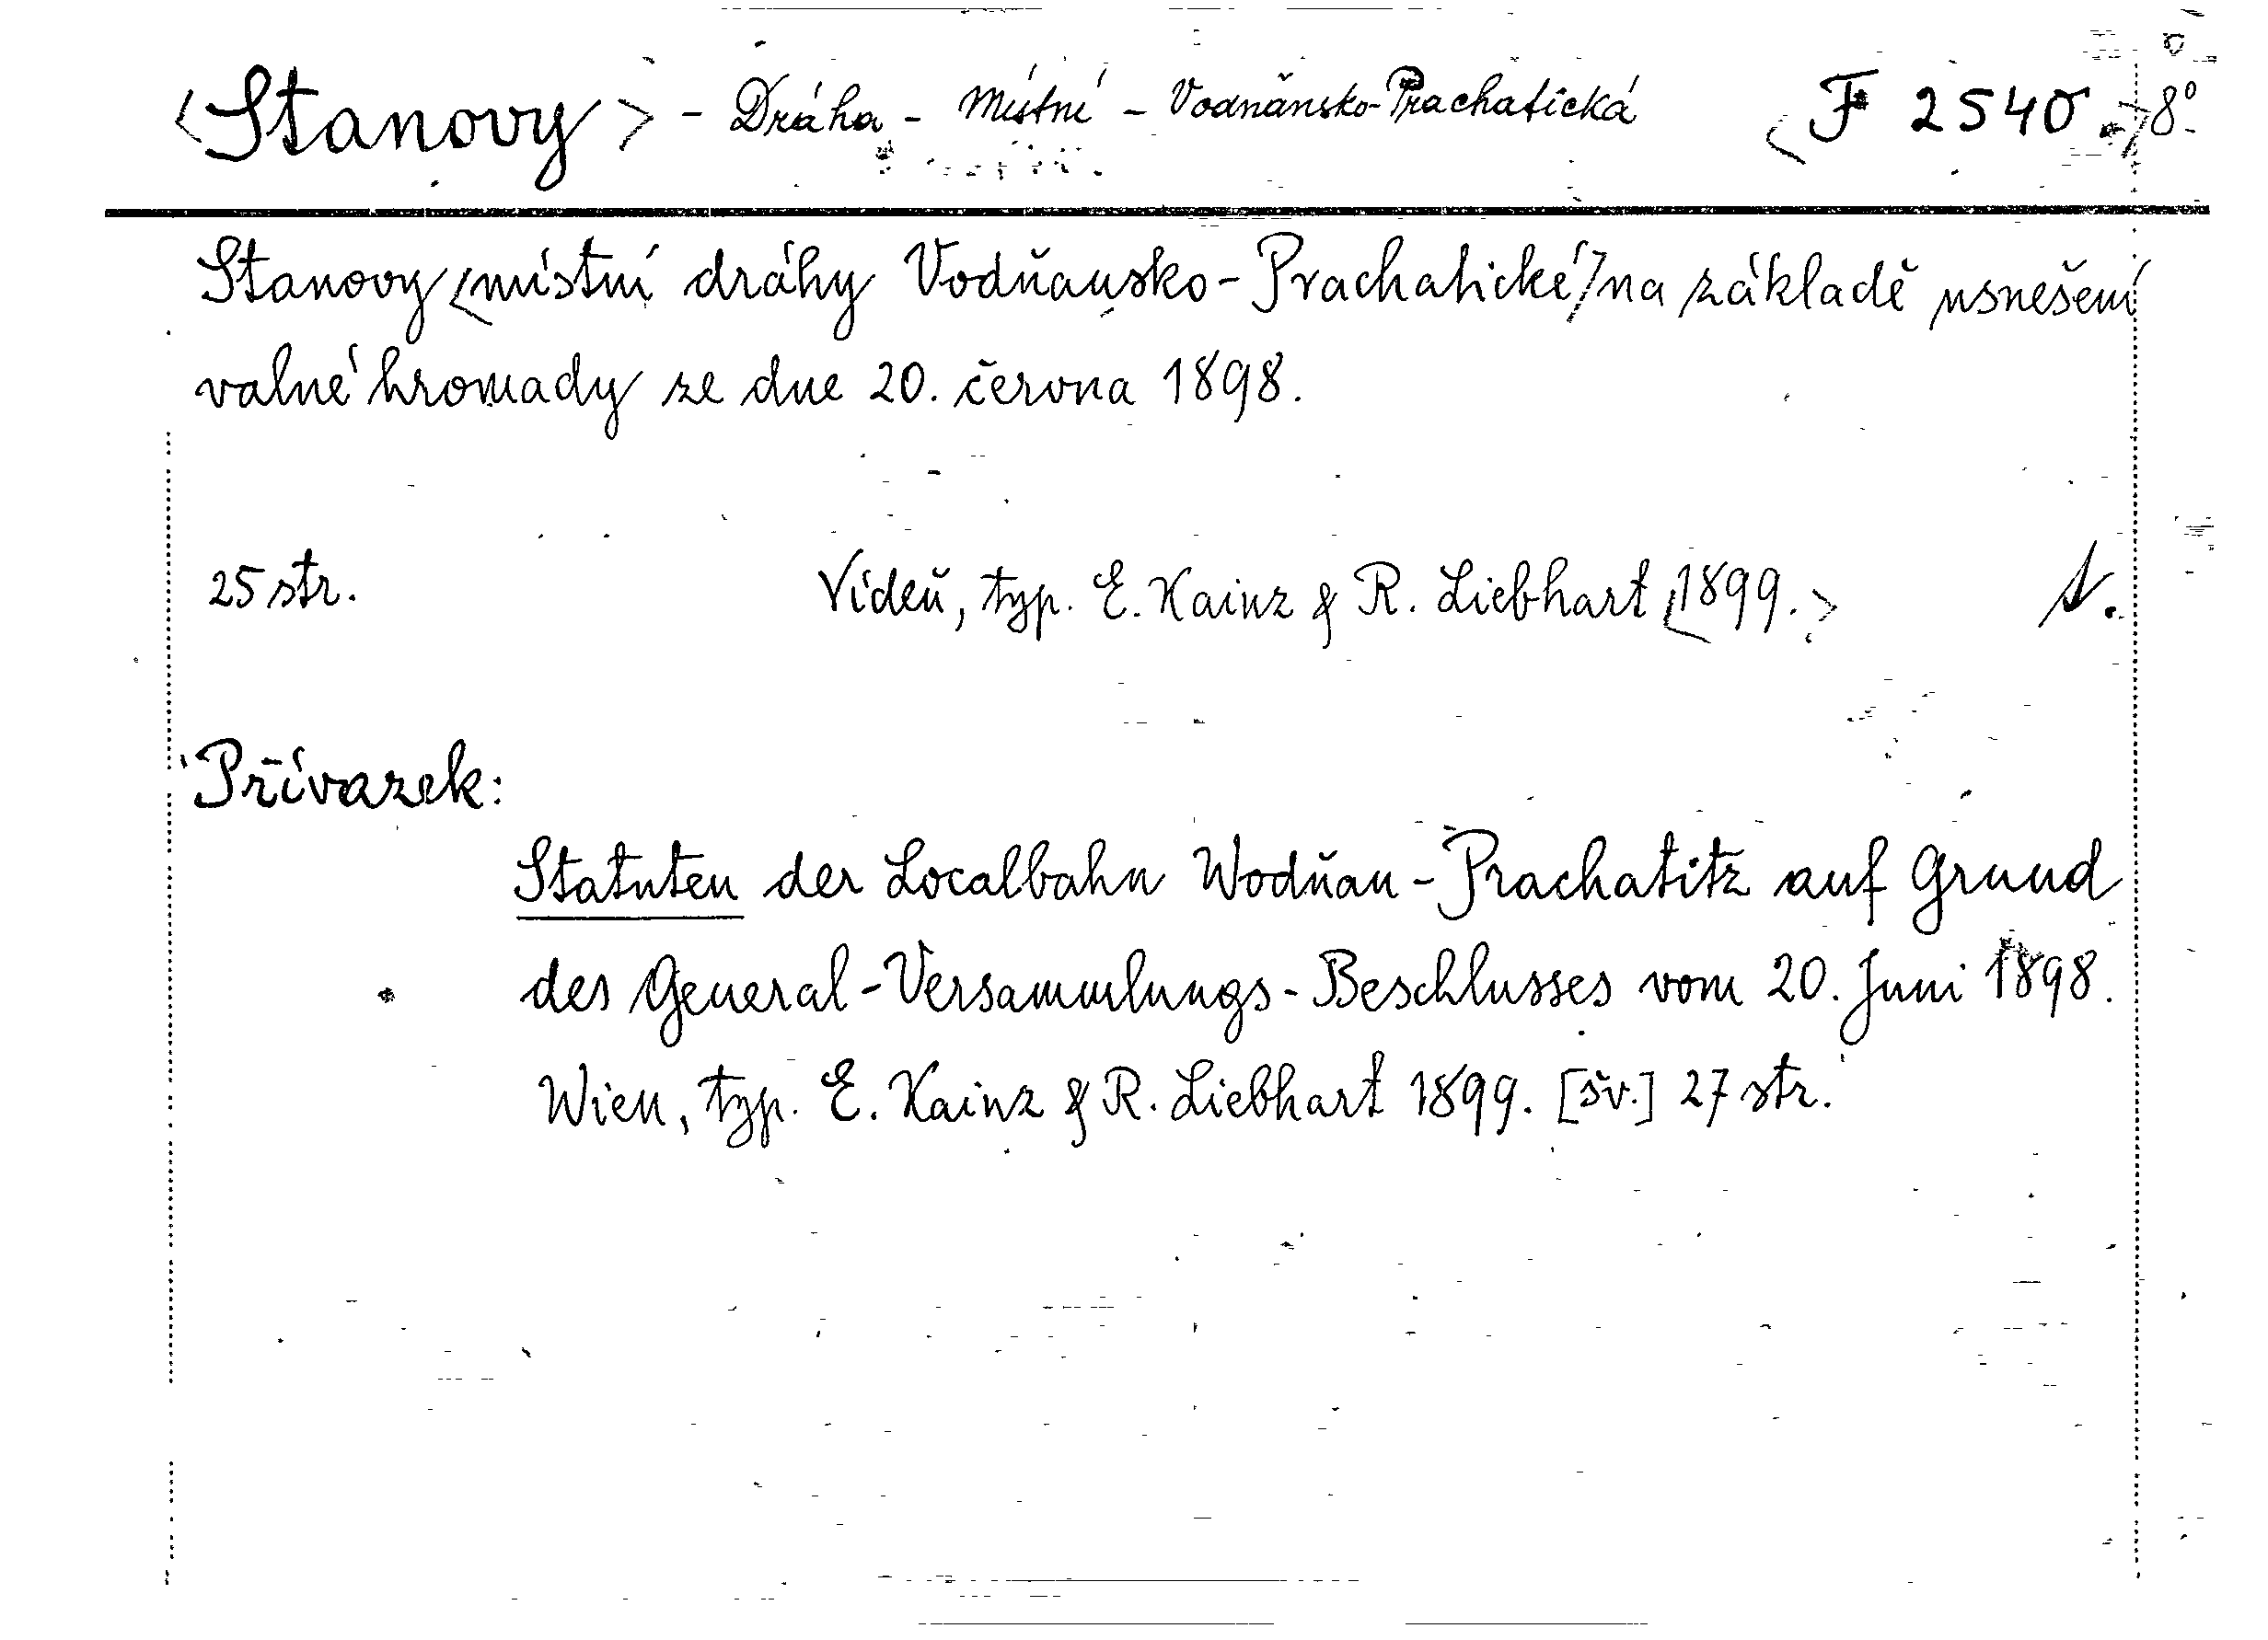 <Stanovy> - Dráha - Místní - Vodňansko-Prachatická <F 2540.> 8°
Stanovy <místní dráhy Vodňansko-Prachatické> na základě usnešení
valné hromady ze dne 20. června 1898.
25 str. Vídeň, typ. E. Kainz & R. Liebhart <1899.>
Přívazek:
Statuten der Localbahn Wodňan-Prachatitz auf Grund
des General-Versammlungs-Beschlusses vom 20. Juni 1898.
Wien, typ. E. Kainz & R. Liebhart 1899. [šv.] 27 str.